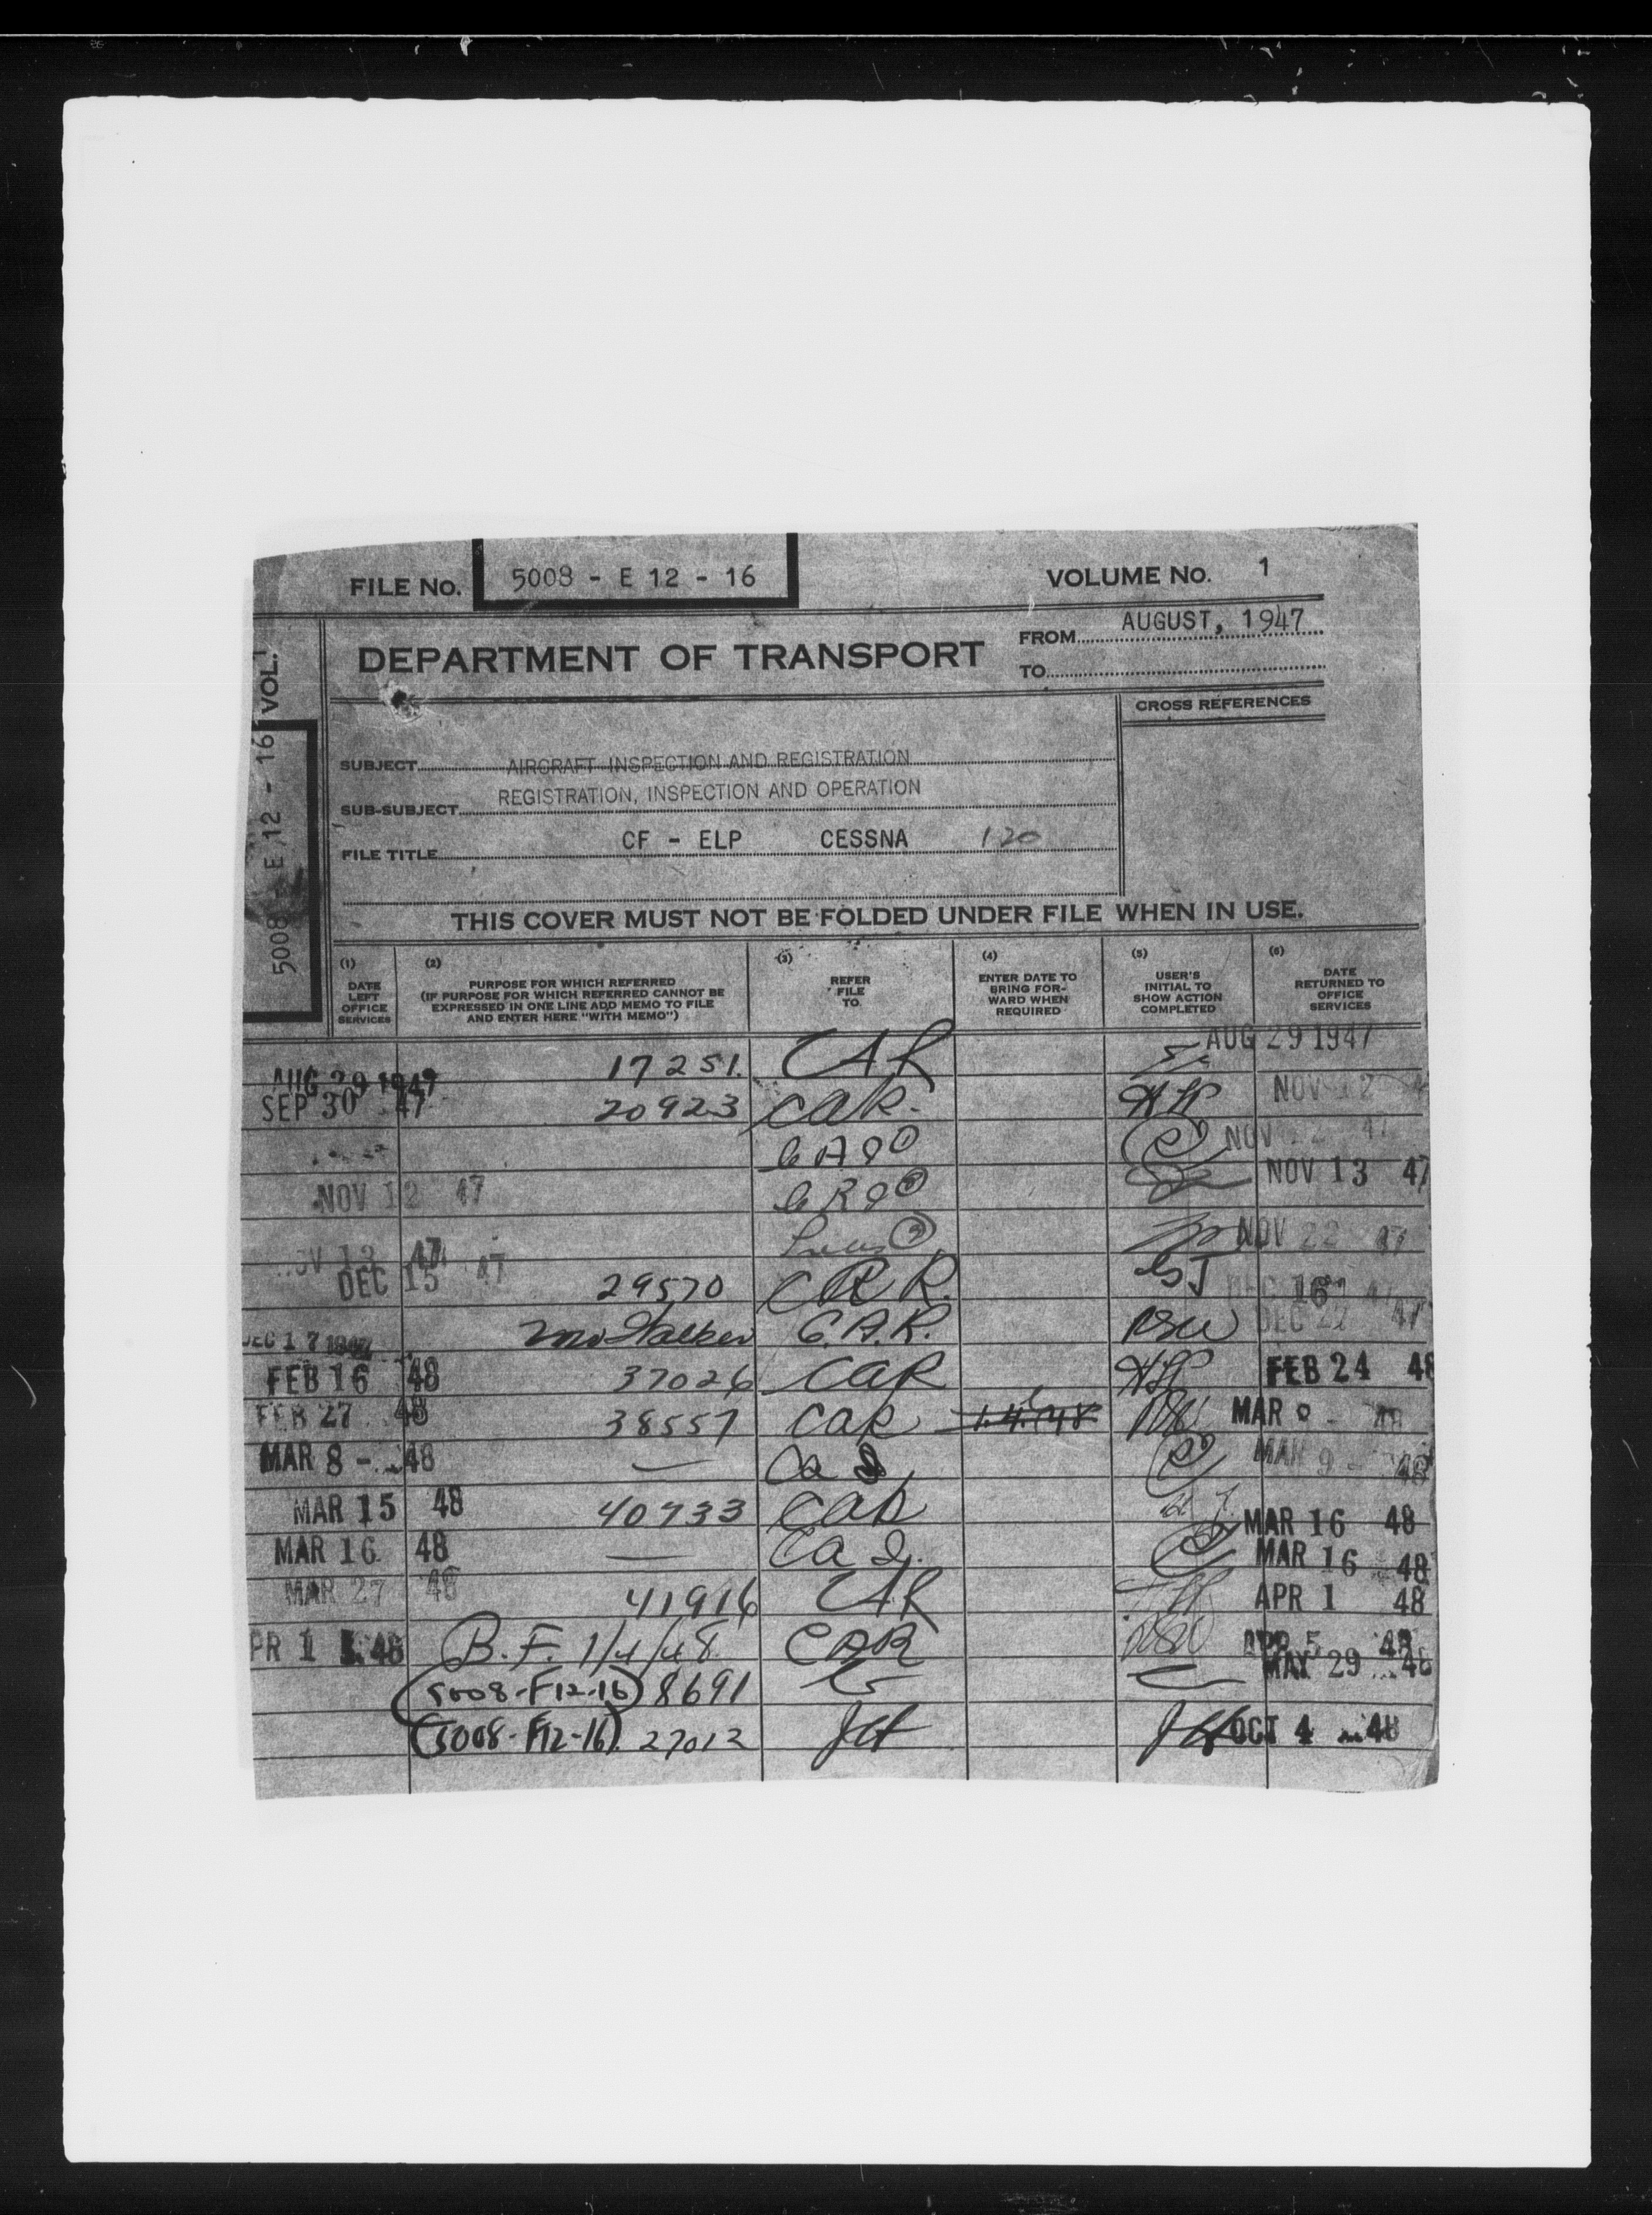 FILE No. 5008 - E 12 - 16 VOLUME No. 1
FROM AUGUST, 1947
DEPARTMENT OF TRANSPORT
TO
CROSS REFERENCES
SUBJECT AIRCRAFT INSPECTION AND REGISTRATION
SUB-SUBJECT REGISTRATION, INSPECTION AND OPERATION
FILE TITLE CF - ELP CESSNA 120
5008 - E 12 - 16 VOL. 1
THIS COVER MUST NOT BE FOLDED UNDER FILE WHEN IN USE.
(1) DATE LEFT OFFICE SERVICES
(2) PURPOSE FOR WHICH REFERRED
(IF PURPOSE FOR WHICH REFERRED CANNOT BE
EXPRESSED IN ONE LINE ADD MEMO TO FILE
AND ENTER HERE "WITH MEMO")
(3) REFER FILE TO
(4) ENTER DATE TO BRING FOR-WARD WHEN REQUIRED
(5) USER'S INITIAL TO SHOW ACTION COMPLETED
(6) DATE RETURNED TO OFFICE SERVICES
AUG 29 1947 17251 CAR AUG 29 1947
SEP 30 47 20923 CAR. NOV 12
NOV 22 47
NOV 12 47 NOV 13 47
NOV 13 47 NOV 22 47
DEC 15 47 29570 C.A.R. DEC 16 47
DEC 17 1947 C.A.R. DEC 22 47
FEB 16 48 37026 CAR FEB 24 48
FEB 27 48 38557 CAR 1.4.48 MAR
MAR 8 - 48 — MAR 9 - 48
MAR 15 48 40733 CAR MAR 16 48
MAR 16 48 — MAR 16 48
MAR 27 48 41916 CAR APR 1 48
APR 1 48 B.F. 1/4/48 CAR APR 5 48
(5008-F12-16) 8691 MAY 29 48
(5008-F12-16) 27012 OCT 4 48